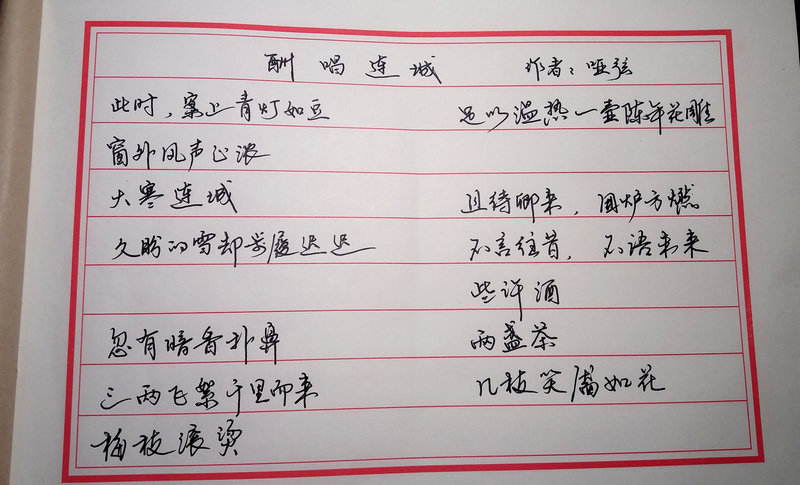 酬唱连城 作者：哑弦
此时，案上青灯如豆
窗外风声正浓
大寒连城
久盼的雪却步履迟迟
忽有暗香扑鼻
三两飞絮千里而来
梅枝滚烫
足以温热一壶陈年花雕
且待卿来，围炉方燃
不言往昔，不语未来
些许酒
两盏茶
几枝笑靥如花